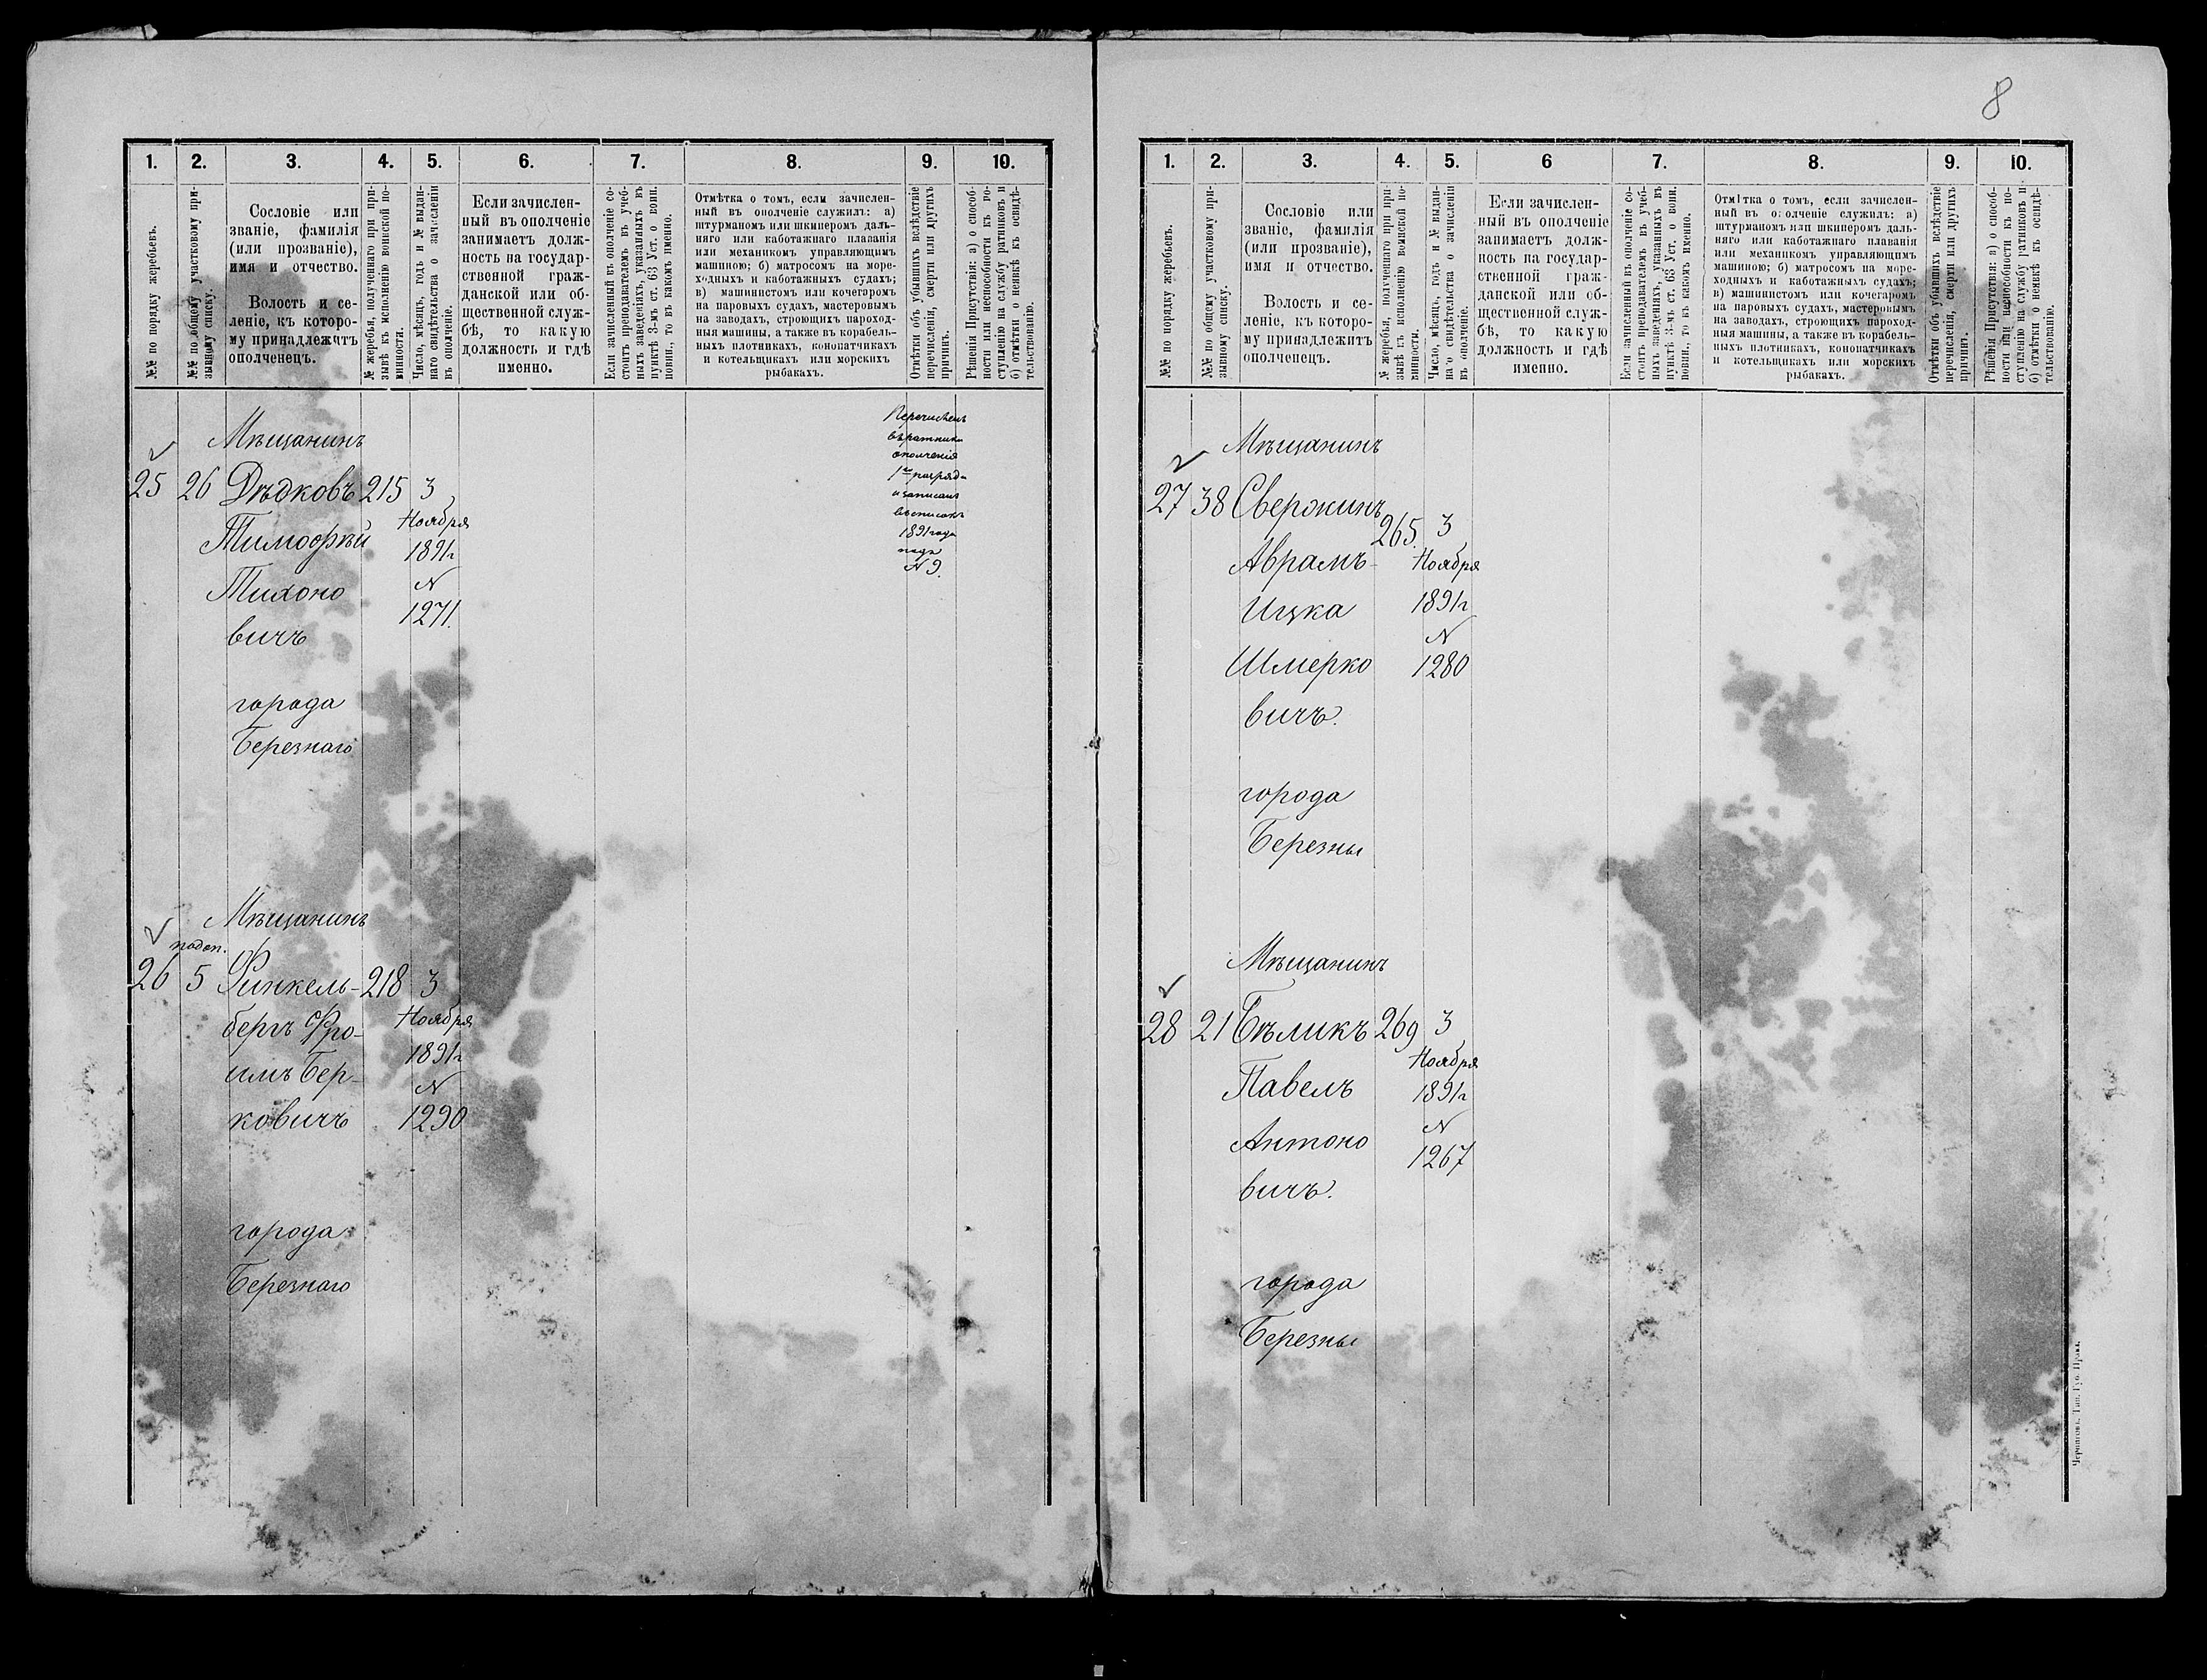 1. 2. 3. 4. 5. 6. 7. 8. 9. 10.
№№ по порядку жеребьевъ.
№№ по общему участковому при-
зывному списку.
Сословіе или
званіе, фамилія
(или прозваніе),
имя и отчество.
Волость и се-
леніе, къ которо-
му принадлежитъ
ополченецъ.
№ жеребья, полученнаго при при-
зывѣ къ исполненію воинской по-
винности.
Число, мѣсяцъ, годъ и № выдан-
наго свидѣтельства о зачисленіи
въ ополченіе.
Если зачислен-
ный въ ополченіе
занимаетъ долж-
ность на государ-
ственной граж-
данской или об-
щественной служ-
бѣ, то какую
должность и гдѣ
именно.
Если зачисленный въ ополченіе со-
стоитъ преподавателемъ въ учеб-
ныхъ заведеніяхъ, указанныхъ въ
пунктѣ 3-мъ ст. 63 Уст. о воин.
повин., то въ какомъ именно.
Отмѣтка о томъ, если зачислен-
ный въ ополченіе служилъ: а)
штурманомъ или шкиперомъ даль-
няго или каботажнаго плаванія
или механикомъ управляющимъ
машиною; б) матросомъ на море-
ходныхъ и каботажныхъ судахъ;
в) машинистомъ или кочегаромъ
на паровыхъ судахъ, мастеровымъ
на заводахъ, строющихъ пароход-
ныя машины, а также въ корабель-
ныхъ плотникахъ, конопатчикахъ
и котельщикахъ или морскихъ
рыбакахъ.
Отмѣтки объ убывшихъ вслѣдствіе
перечисленія, смерти или другихъ
причинъ.
Рѣшенія Присутствія: а) о способ-
ности или неспособности къ по-
ступленію на службу ратниковъ и
б) отмѣтки о неявкѣ къ освидѣ-
тельствованію.
Мѣщанинъ
25 26 Дѣдковъ 215 3
Ноября
Тимофѣй
1891г
Тихоно
N
1271.
вичъ
города
Березнаго
Перечисленъ
въ ратники
ополченія
1го разряда
и записанъ
въ списокъ
1891 года
подъ
N 9.
Мѣщанинъ
подп.
26 5 Финкель- 218 3
бергъ Фро- Ноября
1891г
имъ Бер- N
ковичъ 1290
города
Березнаго
8
1. 2. 3. 4. 5. 6 7. 8. 9. 10.
№№ по порядку жеребьевъ.
№№ по общему участковому при-
зывному списку.
Сословіе или
званіе, фамилія
(или прозваніе),
имя и отчество.
Волость и се-
леніе, къ которо-
му принадлежитъ
ополченецъ.
№ жеребья, полученнаго при при-
зывѣ къ исполненію воинской по-
винности.
Число, мѣсяцъ, годъ и № выдан-
наго свидѣтельства о зачисленіи
въ ополченіе.
Если зачислен-
ный въ ополченіе
занимаетъ долж-
ность на государ-
ственной граж-
данской или об-
щественной служ-
бѣ, то какую
должность и гдѣ
именно.
Если зачисленный въ ополченіе со-
стоитъ преподавателемъ въ учеб-
ныхъ заведеніяхъ, указанныхъ въ
пунктѣ 3-мъ ст. 63 Уст. о воин.
повин., то въ какомъ именно.
Отмѣтка о томъ, если зачислен-
ный въ ополченіе служилъ: а)
штурманомъ или шкиперомъ даль-
няго или каботажнаго плаванія
или механикомъ управляющимъ
машиною; б) матросомъ на море-
ходныхъ и каботажныхъ судахъ;
в) машинистомъ или кочегаромъ
на паровыхъ судахъ, мастеровымъ
на заводахъ, строющихъ пароход-
ныя машины, а также въ корабель-
ныхъ плотникахъ, конопатчикахъ
и котельщикахъ или морскихъ
рыбакахъ.
Отмѣтки объ убывшихъ вслѣдствіе
перечисленія, смерти или другихъ
причинъ.
Рѣшенія Присутствія: а) о способ-
ности или неспособности къ по-
ступленію на службу ратниковъ и
б) отмѣтки о неявкѣ къ освидѣ-
тельствованію.
Мѣщанинъ
27 38 Свержинъ
265. 3
Аврамъ- Ноября
Ицка 1891г
N
Шмерко 1280
вичъ.
города
Березны
Мѣщанинъ
28 21 Бѣликъ 269 3
Ноября
Павелъ 1891г
N
Антоно
1267
вичъ.
города
Березны
Черниговъ. Тип. Губ. Правл.